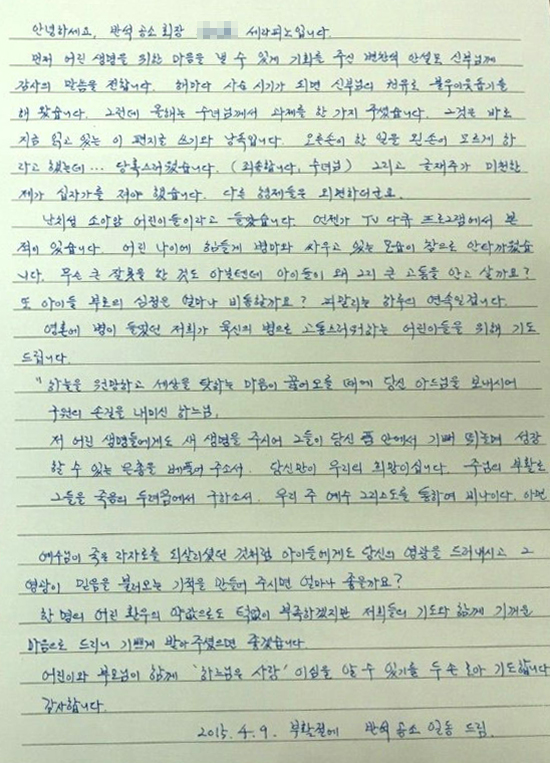 안녕하세요, 반석 공소 회장 세라피노입니다.
먼저 어린 생명을 위한 마음을 낼 수 있게 기회를 주신 변찬석 안셀모 신부님께
감사의 말씀을 전합니다. 해마다 사순시기가 되면 신부님의 권유로 불우이웃돕기를
해 왔습니다. 그런데 올해는 수녀님께서 과제를 한 가지 주셨습니다. 그것은 바로
지금 읽고 있는 이 편지글 쓰기와 낭독입니다. 오른손이 한 일을 왼손이 모르게 하
라고 했는데… 당혹스러웠습니다. (죄송합니다, 수녀님) 그리고 글재주가 미천한
제가 십자가를 져야 했습니다. 다들 형제들은 외면하더군요.
난치성 소아암 어린이들이라고 들었습니다. 언젠가 TV 다큐 프로그램에서 본
적이 있습니다. 어린 나이에 힘들게 병마와 싸우고 있는 모습이 참으로 안타까웠습
니다. 무슨 큰 잘못을 한 것도 아닐텐데 아이들이 왜 그리 큰 고통을 안고 살까요?
또 아이들 부모의 심정은 얼마나 비통할까요? 피말리는 하루의 연속일겁니다.
영혼에 병이 들었던 저희가 육신의 병으로 고통스러워하는 어린아이들을 위해 기도
드립니다.
"하늘을 원망하고 세상을 탓하는 마음이 끓어오를 때에 당신 아드님을 보내시어
구원의 손길을 내미신 하느님,
저 어린 생명들에게도 새 생명을 주시어 그들이 당신 품 안에서 기뻐 뛰놀며 성장
할 수 있는 은총을 베풀어 주소서. 당신만이 우리의 희망이십니다. 주님의 부활로
그들을 죽음의 두려움에서 구하소서. 우리 주 예수 그리스도를 통하여 비나이다. 아멘
예수님이 죽은 라자로를 되살리셨던 것처럼 아이들에게도 당신의 영광을 드러내시고 그
영광이 믿음을 불러오는 기적을 만들어 주시면 얼마나 좋을까요?
한 명의 어린 환우의 약값으로도 턱없이 부족하겠지만 저희들의 기도와 함께 기꺼운
마음으로 드리니 기쁘게 받아주셨으면 좋겠습니다.
어린이와 부모님이 함께 '하느님은 사랑'이심을 알 수 있기를 두 손 모아 기도합니다
감사합니다.
2015. 4. 9. 부활절에 반석 공소 일동 드림.